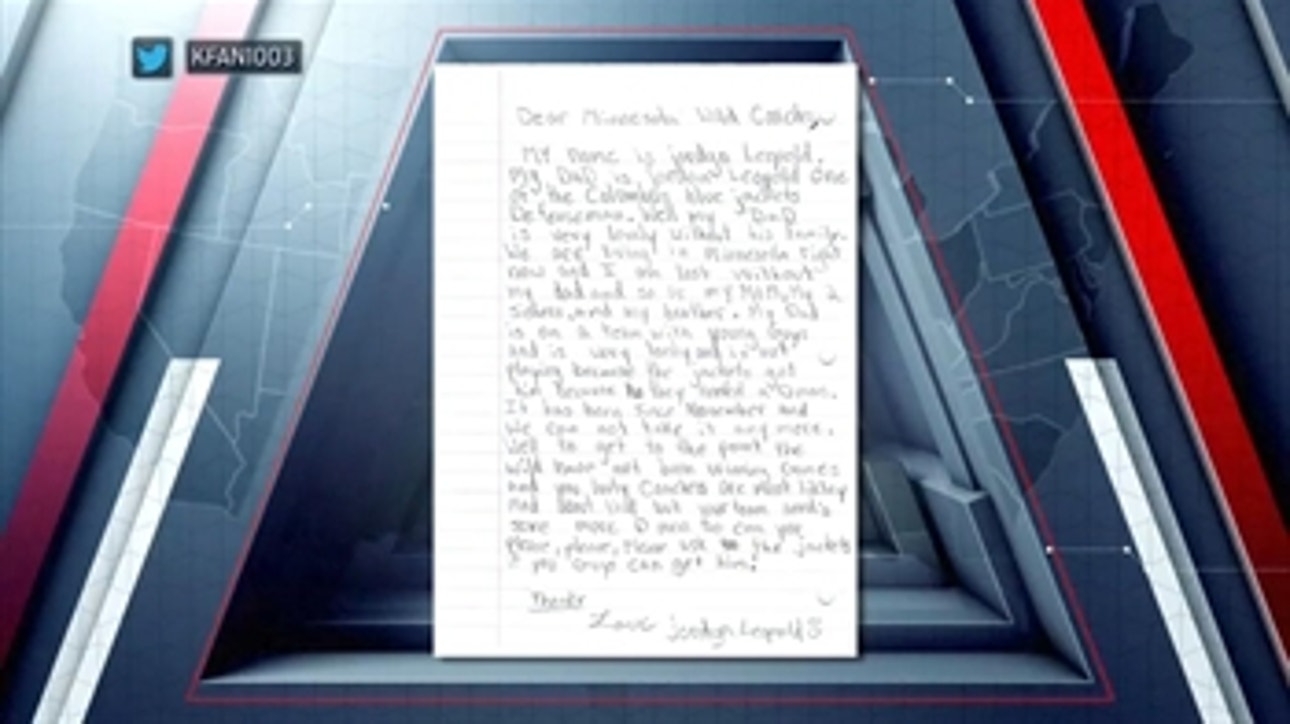 KFAN1003
Dear Minnesota Wild Coaches,
My name is jordyn Leopold.
My DaD is jordan Leopold one
of the Columbus blue jackets
Defenseman. Well my DaD
is very lonly without his family.
We are living in Minnesota right
now and I am lost without
my dad and so is my MoM, My 2
sisters, and my brother. My Dad
is on a team with young guys
and is very lonly and is not
playing because the jackets got
him because they needed a
It has been since November and
We can not take it any more.
Well to get to the point the
wild have not been winning Games
and you lonly Coaches are most likley
mad but your team
some more D men so can you
please, please, please ask the jackets
you Guys can get him!
Thanks
Love jordyn Leopold